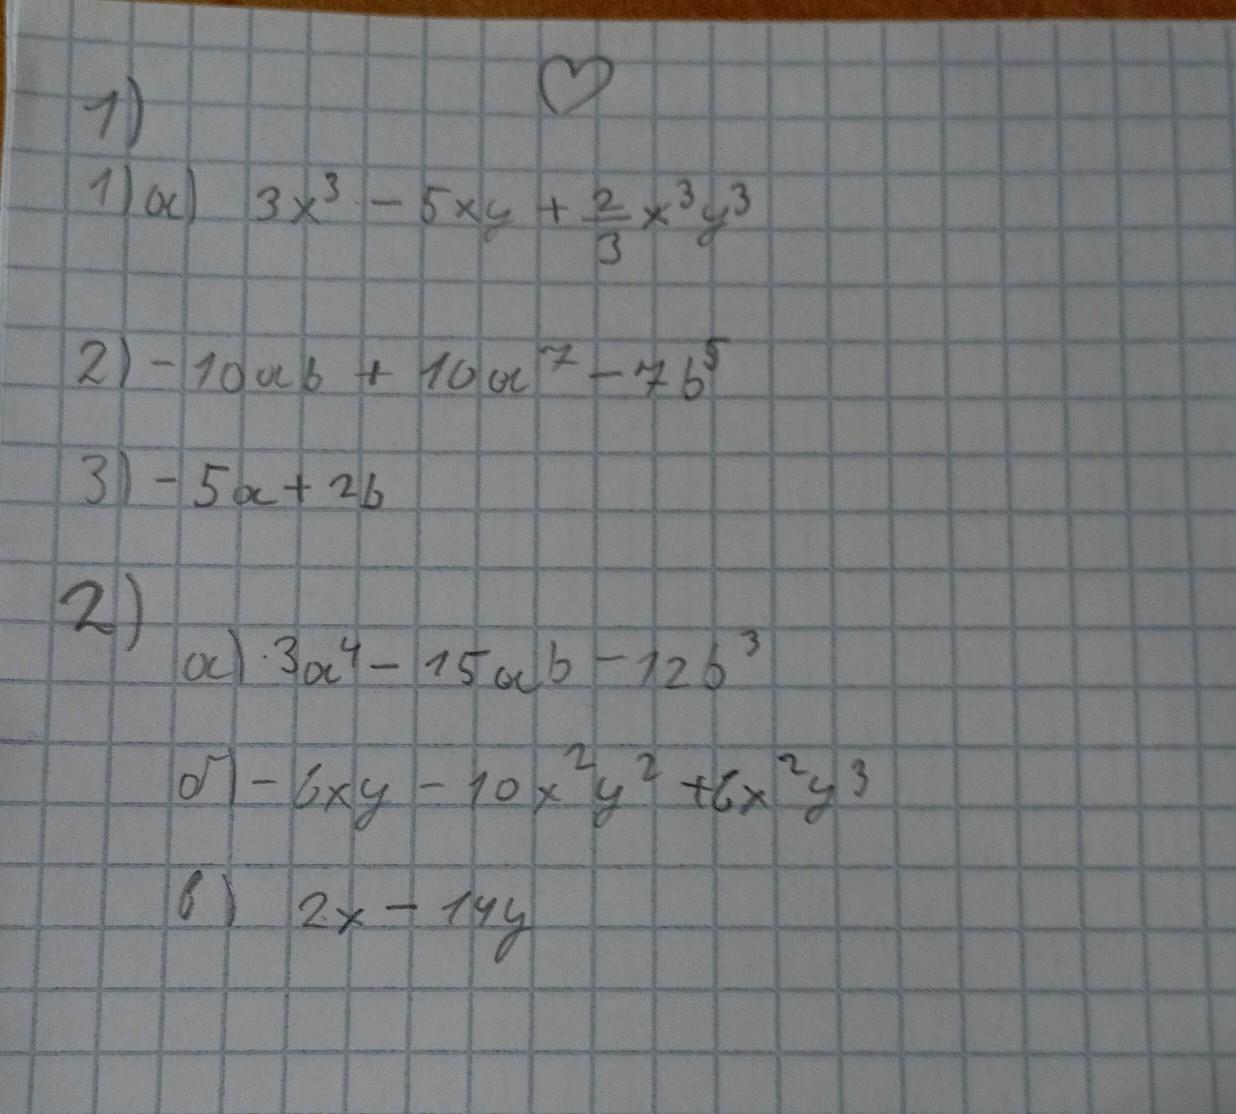 1)
1) а) 3x³ - 5xy + 2/3 x³y³
2) - 10ab + 10a⁷ - 7b⁵
3) - 5a + 2b
2)
а) 3a⁴ - 15ab - 12b³
б) - 6xy - 10x²y² + 6x²y³
в) 2x - 14y